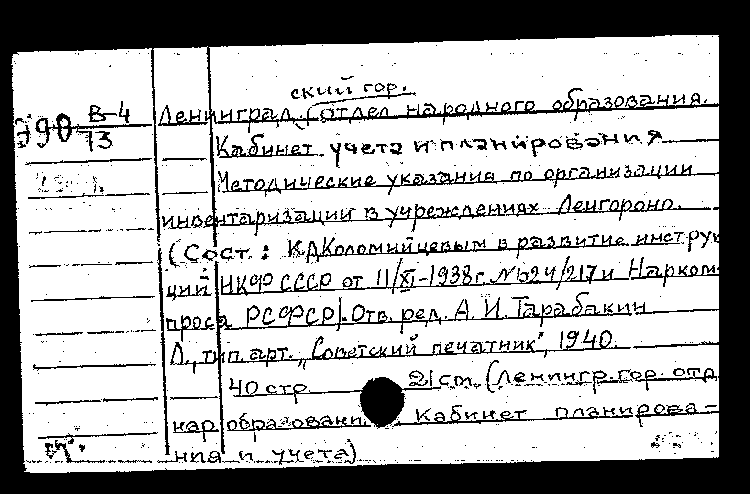 ский гор.
Э90 В-4/13 Ленинград. отдел народного образования.
Кабинет учета и планирования
Методические указания по организации
инвентаризации в учреждениях Ленгороно.
(Сост.: К.Д.Коломийцевым в развитие инструк
ций НКФ СССР от 11/XI-1938г. №624/217 и Нарком-
проса РСФСР). Отв. ред. А. И. Тарабакин
Л., тип. арт. „Советский печатник", 1940.
40 стр. 21 см. (Ленингр. гор. отд
нар образовани Кабинет планирова-
ния и учета)